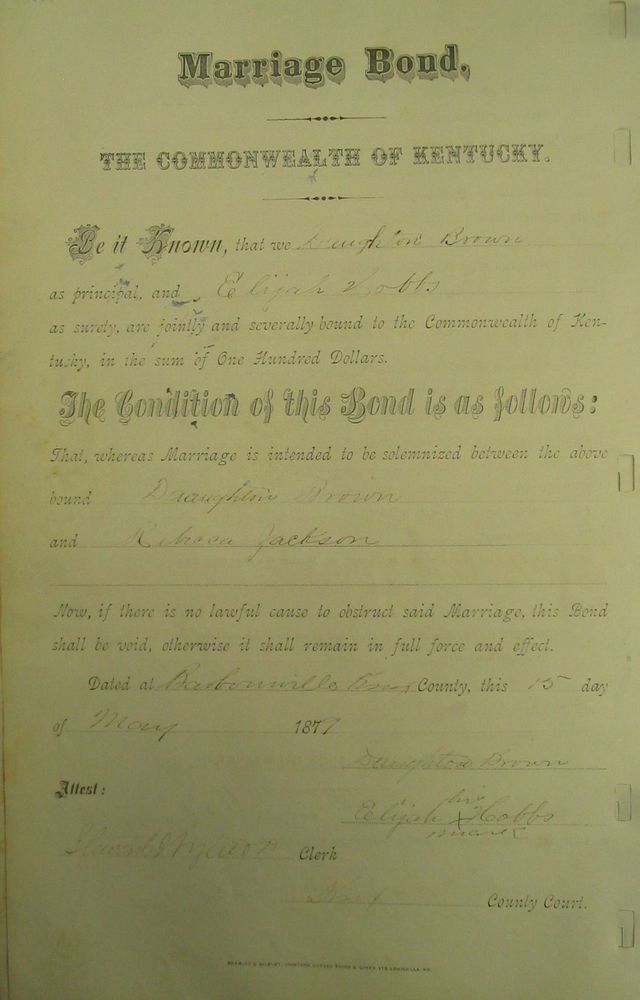 Marriage Bond.
THE COMMONWEALTH OF KENTUCKY.
Be it Known, that we Draughton Brown
as principal, and Elijah Hobbs
as surety, are jointly and severally bound to the Commonwealth of Ken-
tusky, in the sum of One Hundred Dollars.
The Condition of this Bond is as follows:
That, whereas Marriage is intended to be solemnized between the above
bound Draughton Brown
and Rebecca Jackson
Now, if there is no lawful cause to obstruct said Marriage, this Bond
shall be void, otherwise it shall remain in full force and effect.
Dated at Barbourville Knox County, this 15 day
of May 1879
Draughton Brown
Attest:
his
Elijah X Hobbs
mark
Clerk
Knox County Court.